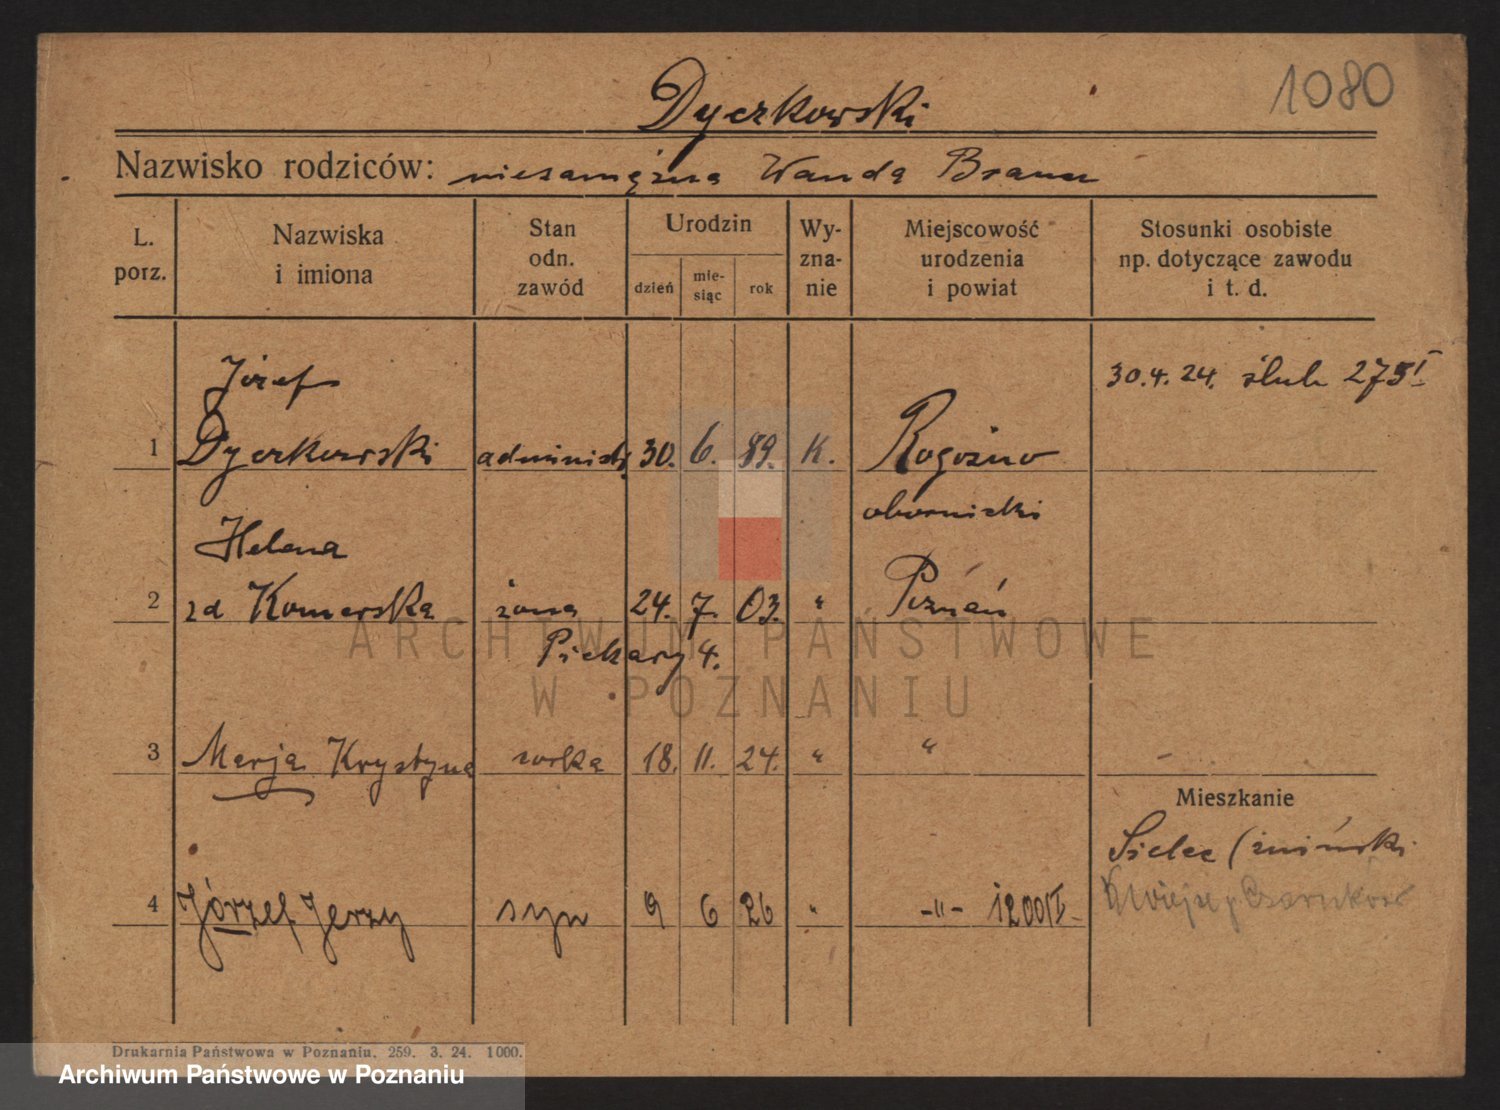 1080
Dyczkowski
Nazwisko rodziców: niezamężna Wanda Braun
L. porz.
Nazwiska i imiona
Stan odn. zawód
Urodzin
dzień
mie-siąc
rok
Wy-zna-nie
Miejscowość urodzenia i powiat
Stosunki osobiste np. dotyczące zawodu i t. d.
Józef
30.4.24. ślub 275I
1 Dyczkowski administr 30. 6. 89. K. Rogoźno
obornicki
Helena
2 zd Komerska żona 24. 7. 03. " Poznań
Piekary 4.
3 Marja Krystyna córka 18. 11. 24. " "
Mieszkanie
Sielec (żniński
4 Józef Jerzy syn 9 6 26 " -"- 1200/I
Czarnków
Drukarnia Państwowa w Poznaniu, 259. 3. 24. 1000.
ARCHIWUM PAŃSTWOWE
W POZNANIU
Archiwum Państwowe w Poznaniu